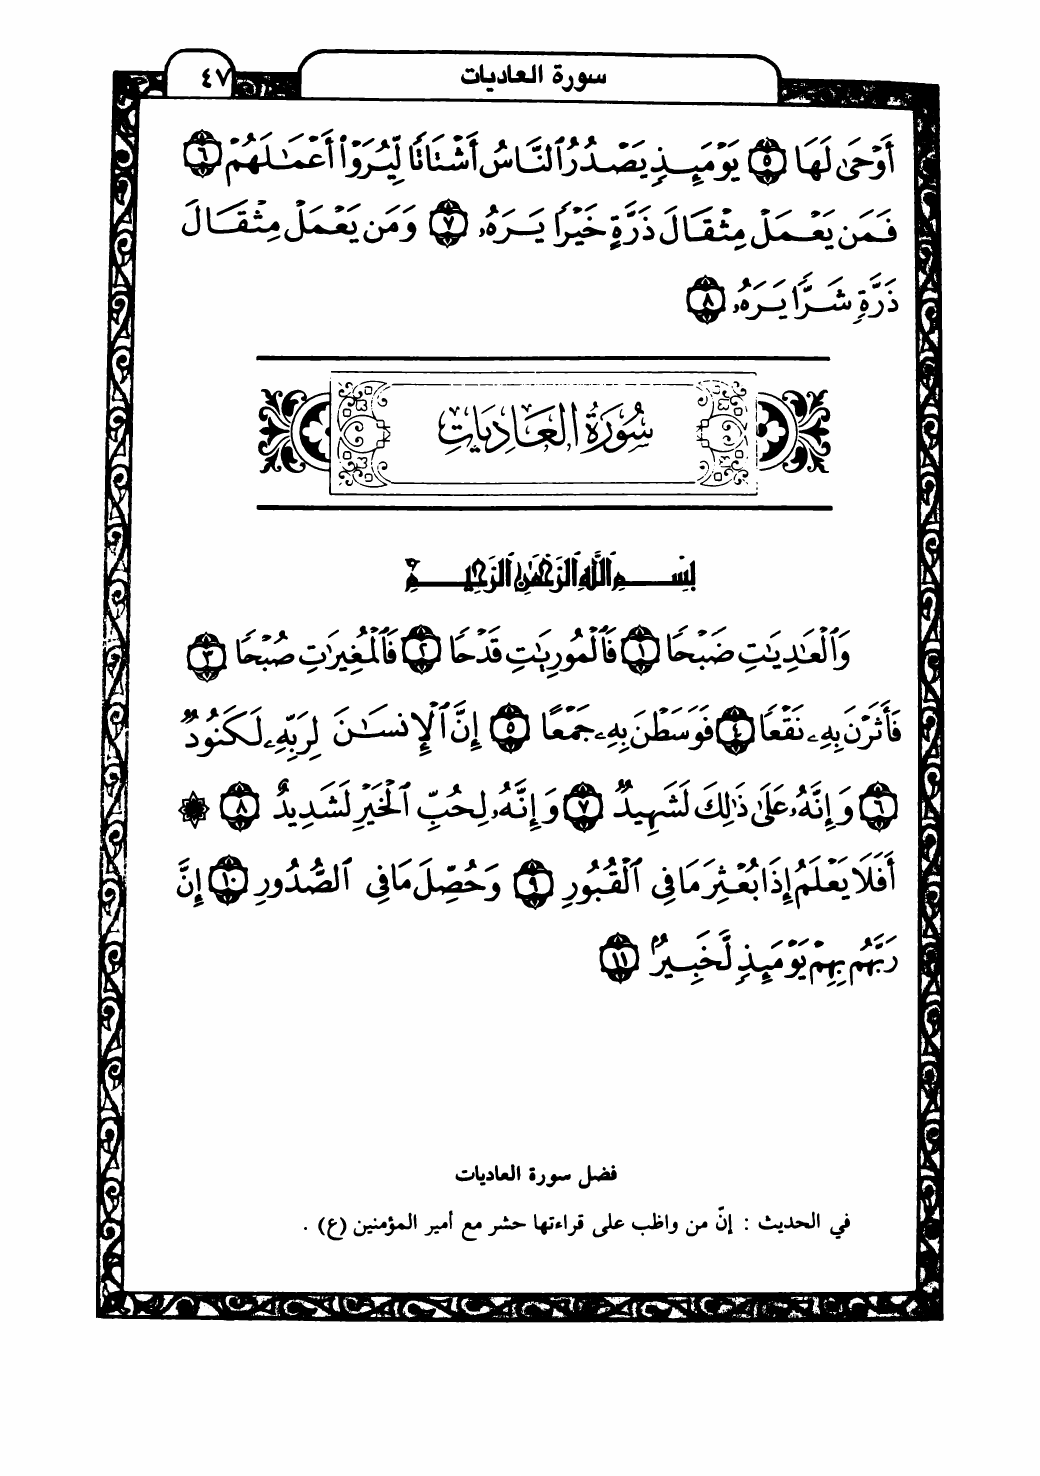 سورة العاديات
٤٧
أَوْحَىٰ لَهَا ٥ يَوْمَئِذٍ يَصْدُرُ ٱلنَّاسُ أَشْتَاتًا لِّيُرَوْا۟ أَعْمَـٰلَهُمْ ٦
فَمَن يَعْمَلْ مِثْقَالَ ذَرَّةٍ خَيْرًا يَرَهُۥ ٧ وَمَن يَعْمَلْ مِثْقَالَ
ذَرَّةٍ شَرًّا يَرَهُۥ ٨
سُورَةُ العَادِيَاتِ
بِسْمِ ٱللَّهِ ٱلرَّحْمَـٰنِ ٱلرَّحِيمِ
وَٱلْعَـٰدِيَـٰتِ ضَبْحًا ١ فَٱلْمُورِيَـٰتِ قَدْحًا ٢ فَٱلْمُغِيرَٰتِ صُبْحًا ٣
فَأَثَرْنَ بِهِۦ نَقْعًا ٤ فَوَسَطْنَ بِهِۦ جَمْعًا ٥ إِنَّ ٱلْإِنسَـٰنَ لِرَبِّهِۦ لَكَنُودٌ
٦ وَإِنَّهُۥ عَلَىٰ ذَٰلِكَ لَشَهِيدٌ ٧ وَإِنَّهُۥ لِحُبِّ ٱلْخَيْرِ لَشَدِيدٌ ٨ ۞
أَفَلَا يَعْلَمُ إِذَا بُعْثِرَ مَا فِى ٱلْقُبُورِ ٩ وَحُصِّلَ مَا فِى ٱلصُّدُورِ ١٠ إِنَّ
رَبَّهُم بِهِمْ يَوْمَئِذٍ لَّخَبِيرٌۢ ١١
فضل سورة العاديات
في الحديث : إنّ من واظب على قراءتها حشر مع أمير المؤمنين (ع) .